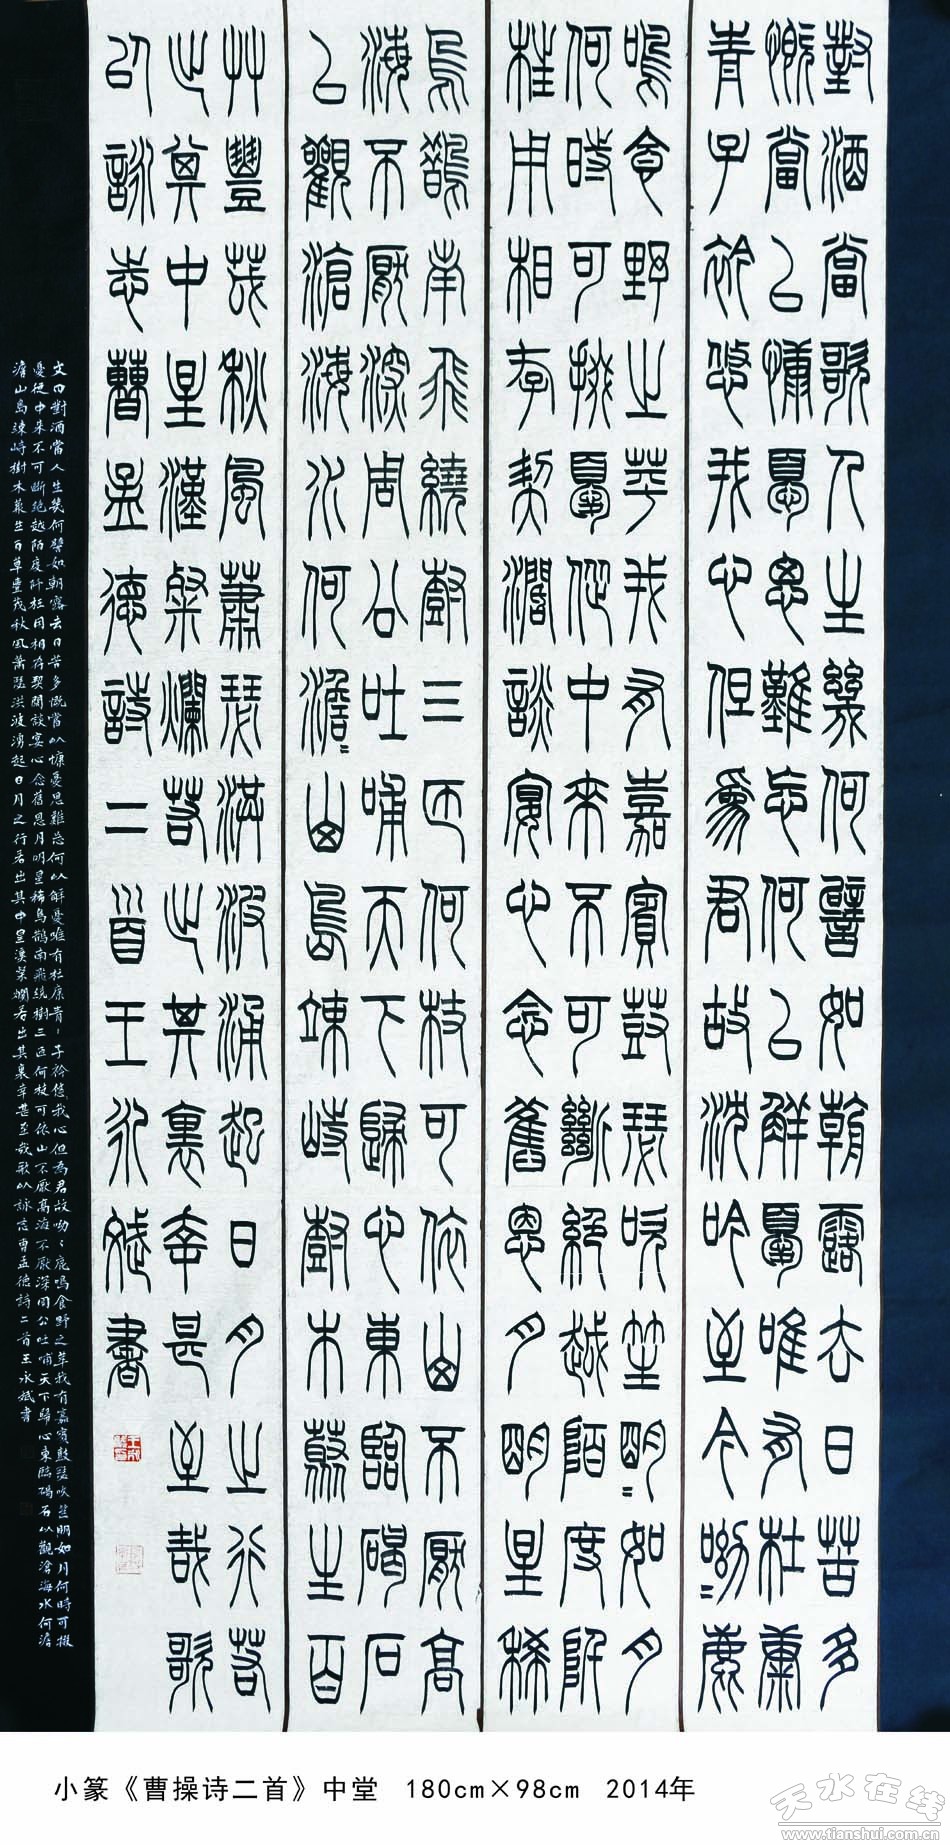 對酒當歌人生幾何譬如朝露去日苦多
慨當以慷憂思難忘何以解憂唯有杜康
青子衿悠我心但為君故沈吟至今呦〻鹿
鳴食野之苹我有嘉賓鼓瑟吹笙明〻如月
何時可掇憂從中來不可斷絕越陌度阡
枉用相存契闊談宴心念舊恩月明星稀
烏鵲南飛繞樹三匝何枝可依山不厭高
海不厭深周公吐哺天下歸心東臨碣石
以觀滄海水何澹〻山島竦峙樹木叢生百
艸豐茂秋風蕭瑟洪波涌起日月之行若
出其中星漢粲爛若出其裏幸甚至哉歌
以詠志曹孟德詩二首王永斌書
文曰對酒當人生幾何譬如朝露去日苦多慨當以慷憂思難忘何以解憂唯有杜康青〻子衿悠我心但為君故呦〻鹿鳴食野之苹我有嘉賓鼓瑟吹笙明如月何時可掇
憂從中來不可斷絕越陌度阡枉用相存契闊談宴心念舊恩月明星稀烏鵲南飛繞樹三匝何枝可依山不厭高海不厭深周公吐哺天下歸心東臨碣石以觀滄海水何澹
澹山島竦峙樹木叢生百草豐茂秋風蕭瑟洪波湧起日月之行若出其中星漢粲爛若出其裏幸甚至哉歌以詠志曹孟德詩二首王永斌書
小篆《曹操诗二首》中堂 180cm×98cm 2014年
天水在线
www.tianshui.com.cn